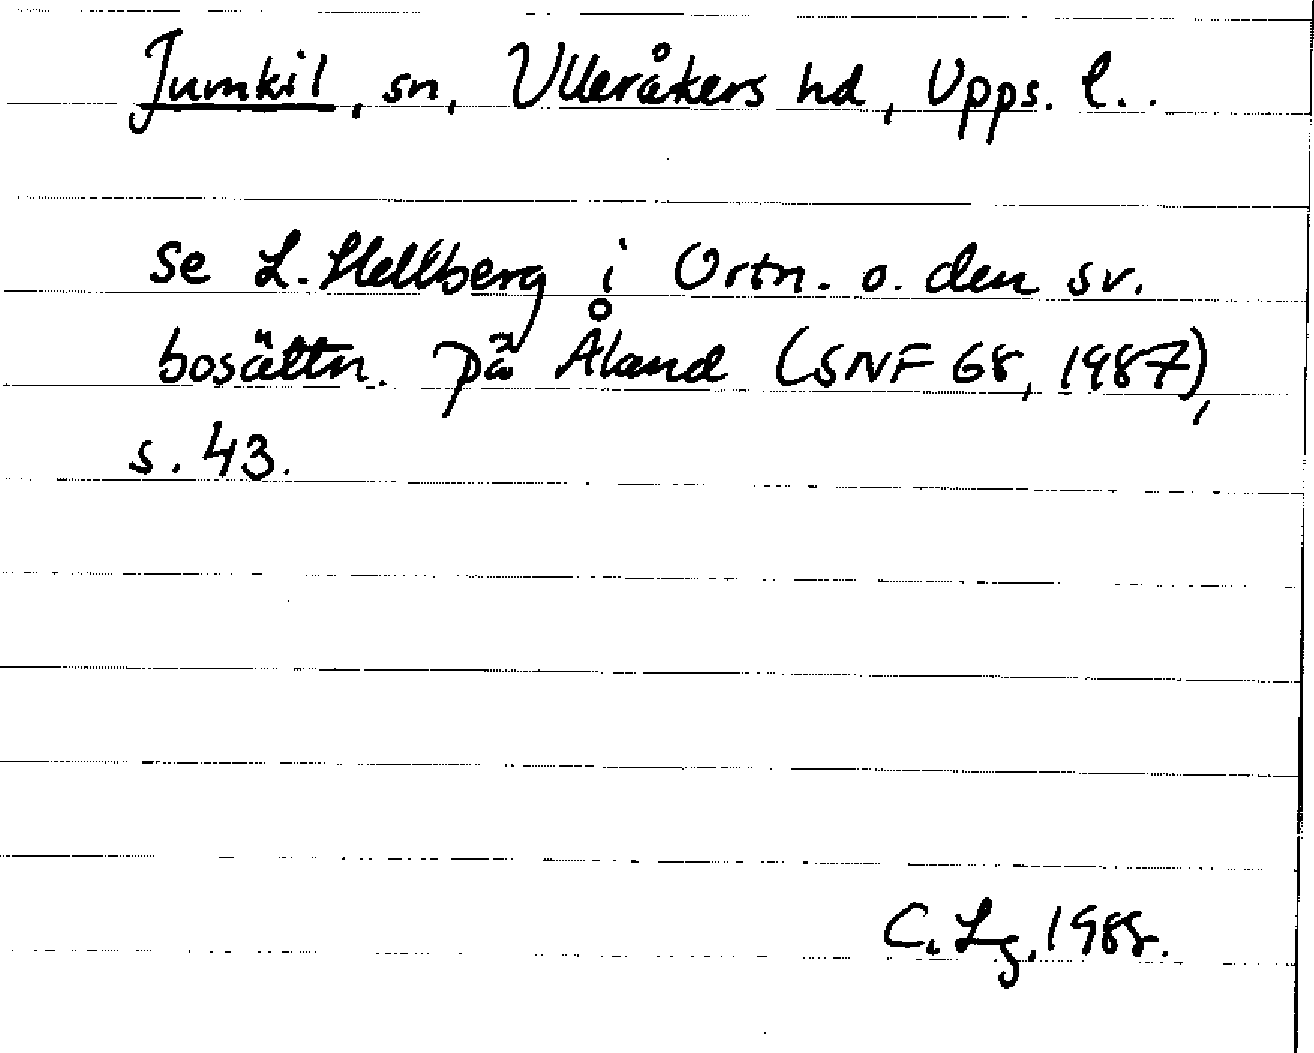 Jumkil, sn, Ulleråkers hd, Upps. l..
se L. Hellberg i Ortn. o. den sv.
bosättn. på Åland (SNF 68, 1987),
s. 43.
C. Lg, 1988.